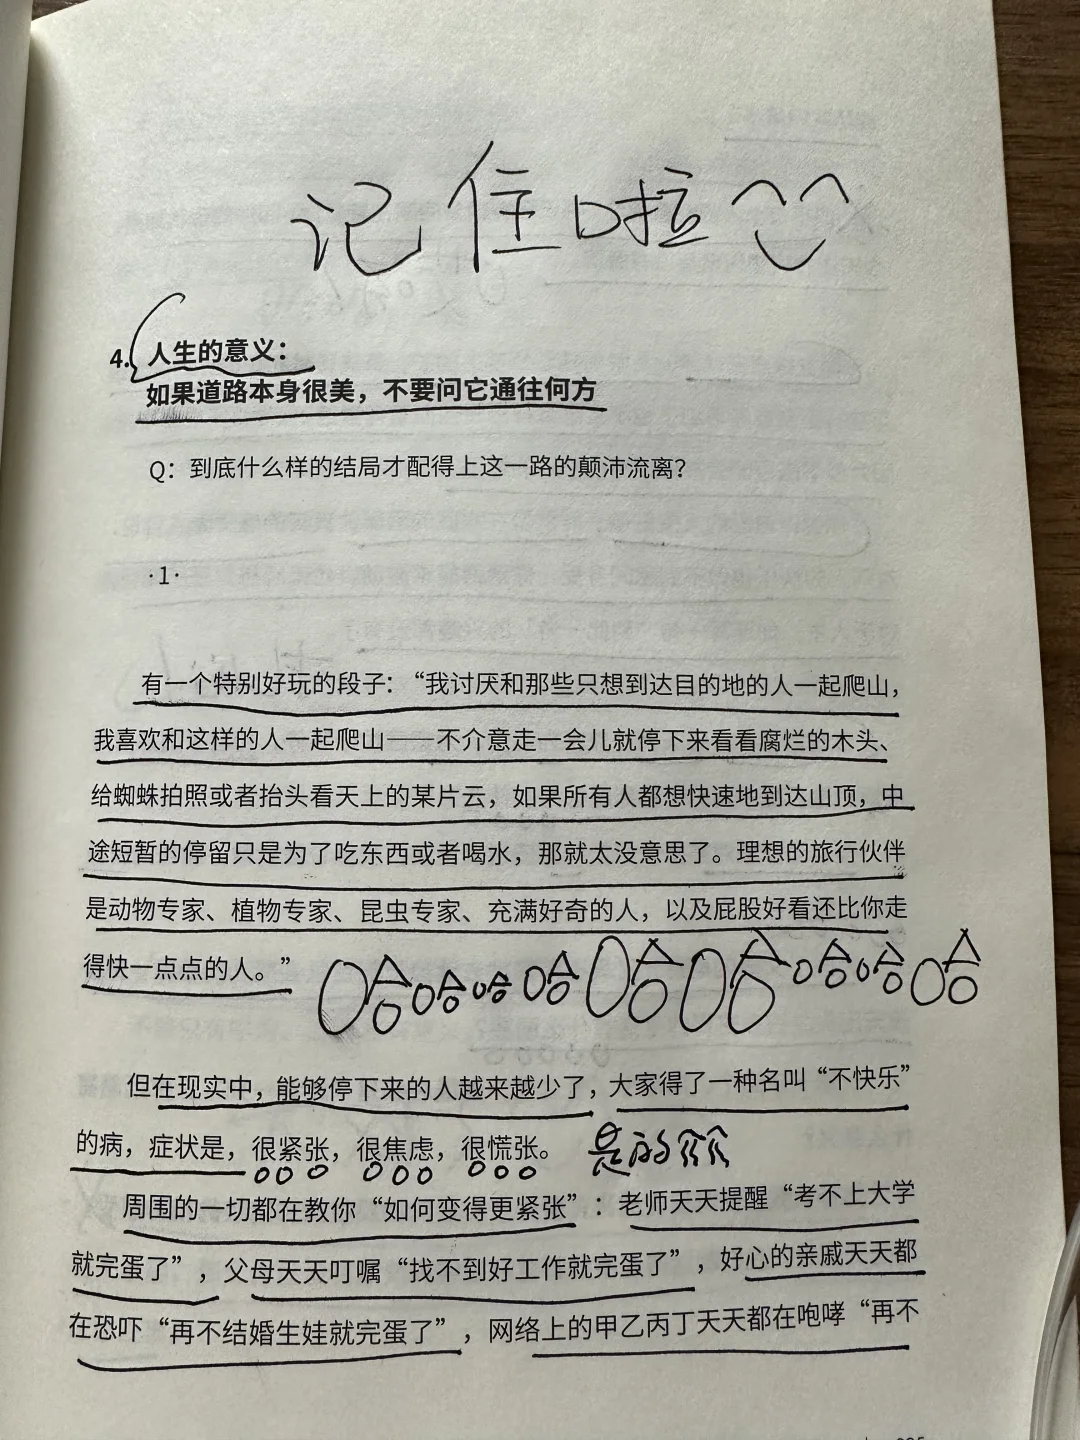 记住啦
4. 人生的意义：
如果道路本身很美，不要问它通往何方
Q：到底什么样的结局才配得上这一路的颠沛流离？
·1·
有一个特别好玩的段子：“我讨厌和那些只想到达目的地的人一起爬山，
我喜欢和这样的人一起爬山——不介意走一会儿就停下来看看腐烂的木头、
给蜘蛛拍照或者抬头看天上的某片云，如果所有人都想快速地到达山顶，中
途短暂的停留只是为了吃东西或者喝水，那就太没意思了。理想的旅行伙伴
是动物专家、植物专家、昆虫专家、充满好奇的人，以及屁股好看还比你走
得快一点点的人。”
但在现实中，能够停下来的人越来越少了，大家得了一种名叫“不快乐”
的病，症状是，很紧张，很焦虑，很慌张。 是的
周围的一切都在教你“如何变得更紧张”：老师天天提醒“考不上大学
就完蛋了”，父母天天叮嘱“找不到好工作就完蛋了”，好心的亲戚天天都
在恐吓“再不结婚生娃就完蛋了”，网络上的甲乙丙丁天天都在咆哮“再不